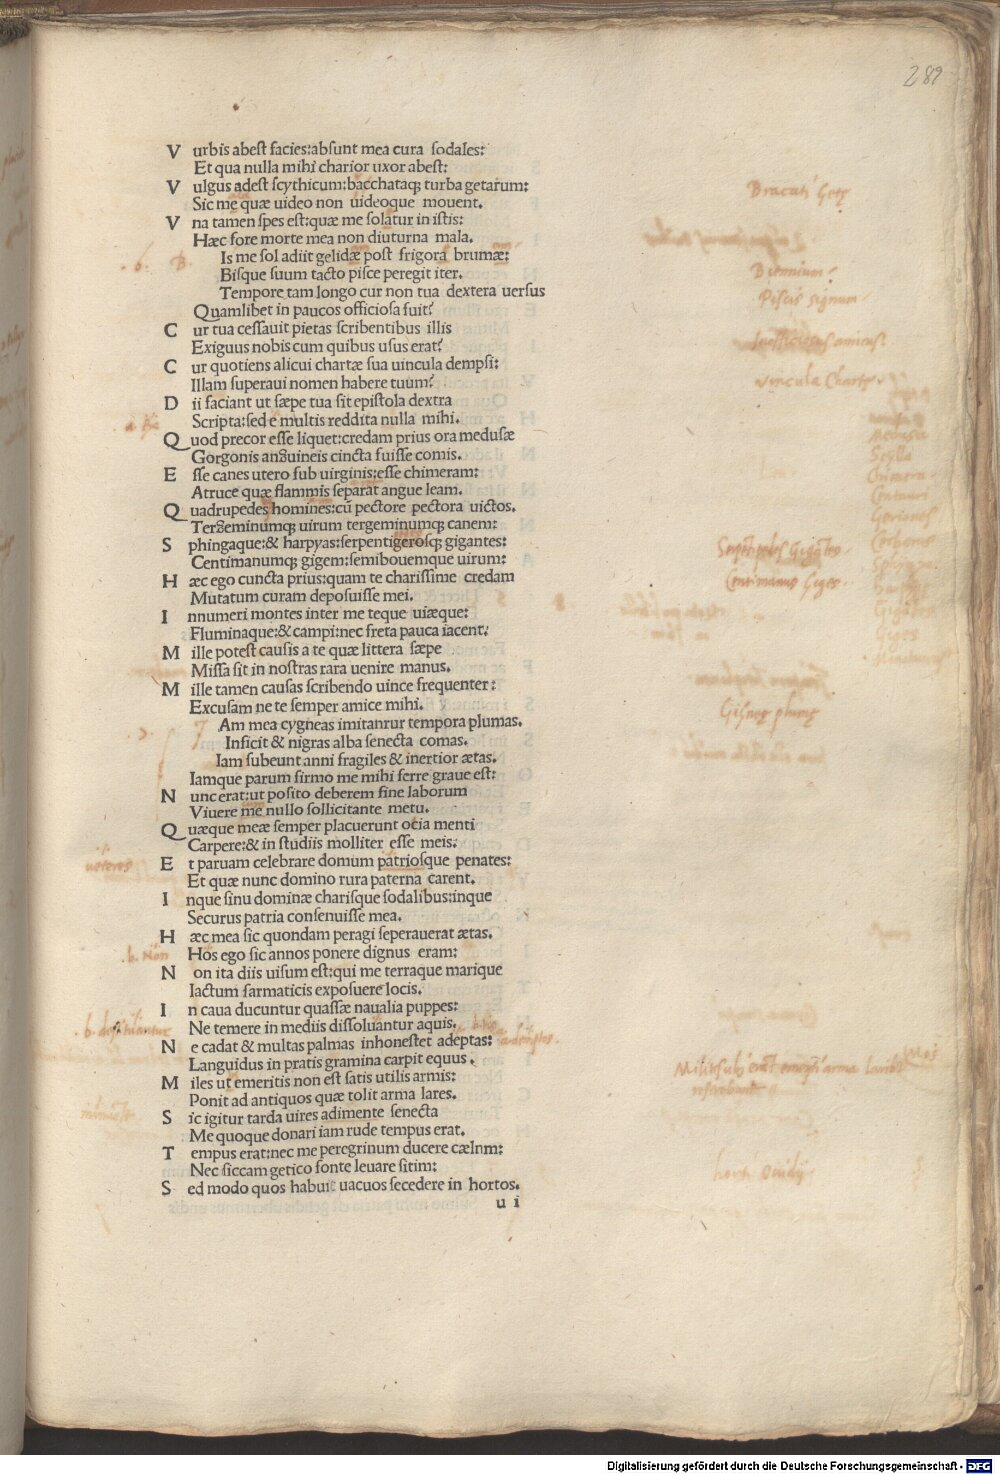 289
V urbis abest facies:absunt mea cura sodales:
Et qua nulla mihi charior uxor abest:
V ulgus adest scythicum:bacchataq; turba getarum:
Sic me quæ uideo non uideoque mouent.
V na tamen spes est:quæ me solatur in istis:
Hæc fore morte mea non diuturna mala.
Is me sol adiit gelidæ post frigora brumæ:
Bisque suum tacto pisce peregit iter.
Tempore tam longo cur non tua dextera uersus
Quamlibet in paucos officiosa fuit?
C ur tua cessauit pietas scribentibus illis
Exiguus nobis cum quibus usus erat?
C ur quotiens alicui chartæ sua uincula dempsi:
Illam superaui nomen habere tuum?
D ii faciant ut sæpe tua sit epistola dextra
Scripta:sed e multis reddita nulla mihi.
Q uod precor esse liquet:credam prius ora medusæ
Gorgonis anguineis cincta fuisse comis.
E sse canes utero sub uirginis:esse chimeram:
Atruce quæ flammis separat angue leam.
Q uadrupedes homines:cū pectore pectora uictos.
Tergeminumq; uirum tergeminumq; canem:
S phingaque:& harpyas:serpentigerosq; gigantes:
Centimanumq; gigem:semibouemque uirum:
H æc ego cuncta prius:quam te charissime credam
Mutatum curam deposuisse mei.
I nnumeri montes inter me teque uiæque:
Fluminaque:& campi:nec freta pauca iacent:
M ille potest causis a te quæ littera sæpe
Missa sit in nostras rara uenire manus.
M ille tamen causas scribendo uince frequenter:
Excusam ne te semper amice mihi.
Am mea cygneas imitanrur tempora plumas.
Inficit & nigras alba senecta comas.
Iam subeunt anni fragiles & inertior ætas.
Iamque parum firmo me mihi ferre graue est:
N unc erat:ut posito deberem fine laborum
Viuere me nullo sollicitante metu.
Q uæque meæ semper placuerunt ocia menti
Carpere:& in studiis molliter esse meis:
E t paruam celebrare domum patriosque penates:
Et quæ nunc domino rura paterna carent.
I nque sinu dominæ charisque sodalibus:inque
Securus patria consenuisse mea.
H æc mea sic quondam peragi seperauerat ætas.
Hos ego sic annos ponere dignus eram:
N on ita diis uisum est:qui me terraque marique
Iactum sarmaticis exposuere locis.
I n caua ducuntur quassæ naualia puppes:
Ne temere in mediis dissoluantur aquis.
N e cadat & multas palmas inhonestet adeptas:
Languidus in pratis gramina carpit equus.
M iles ut emeritis non est satis utilis armis:
Ponit ad antiquos quæ tolit arma lares.
S ic igitur tarda uires adimente senecta
Me quoque donari iam rude tempus erat.
T empus erat:nec me peregrinum ducere cælnm:
Nec siccam getico fonte leuare sitim:
S ed modo quos habui uacuos secedere in hortos.
u i
Bracati Getę
Biennium
Piscis signum
Inofficiosus amicus
vincula Chartę
Medusa
Scylla
Chimera
Centauri
Serpentipedes Gigātes
Centimanus Giges
Gigātes
Giges
Cigneę plumę
veteres
b. Non
horti Ouidij
Digitalisierung gefördert durch die Deutsche Forschungsgemeinschaft - DFG